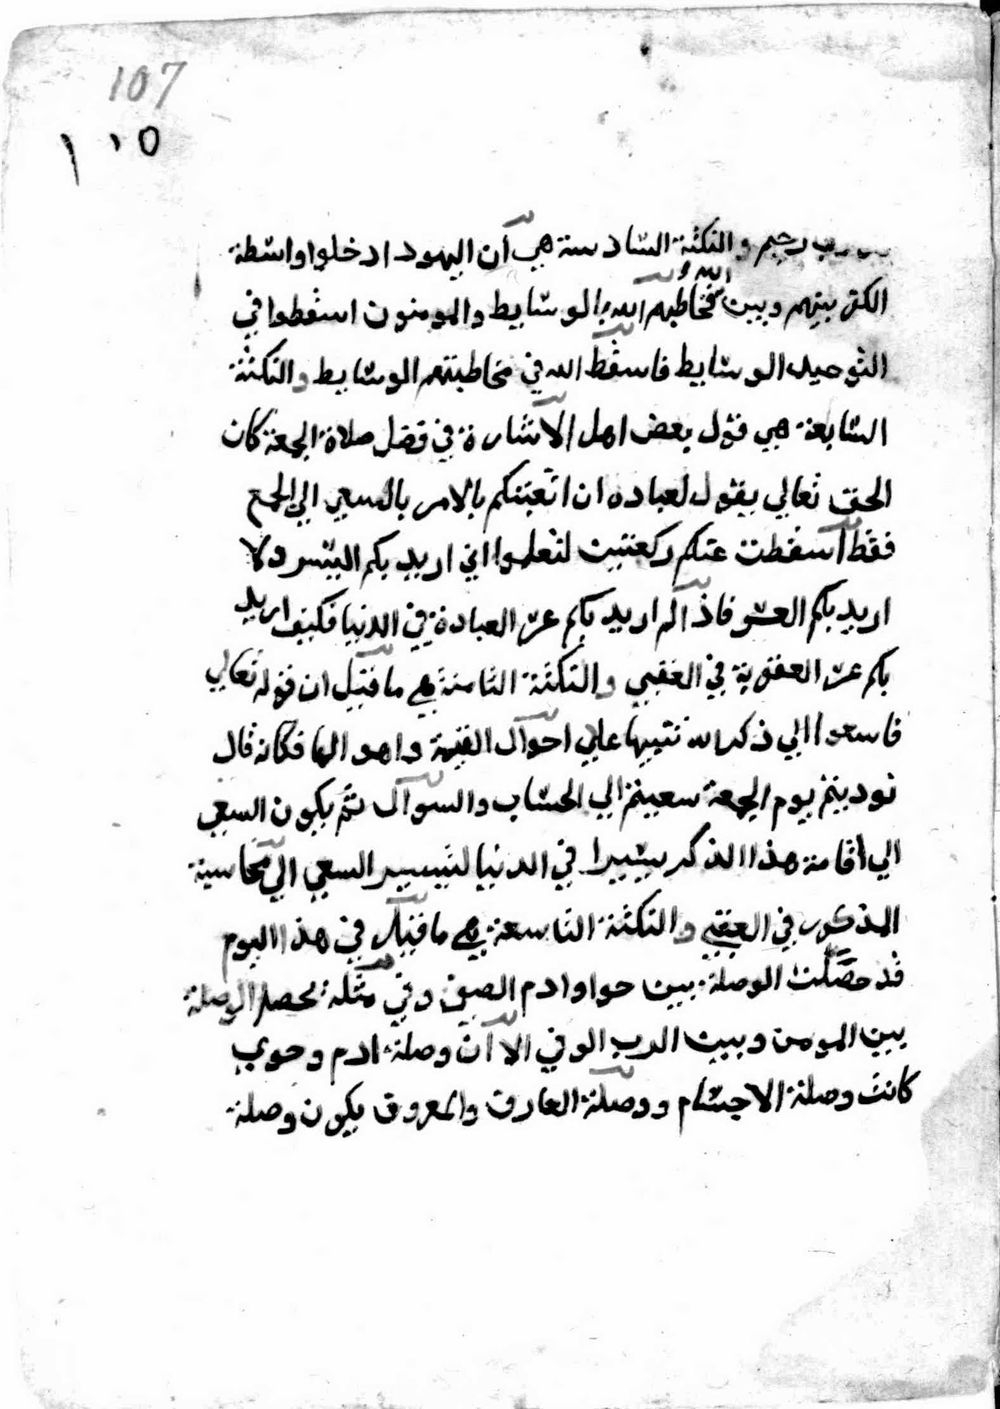 107
١٠٥
رب رحيم والنكتة السادسة هي ان اليهود ادخلوا واسطة
الكتر بينهم وبين الله فخاطبهم الله بالوسايط والمومنون اسقطوا في
التوحيد الوسايط فاسقط الله في مخاطبتهم الوسايط والنكتة
السابعة هي قول بعض اهل الاشارة في فضل صلاة الجمعة كان
الحق تعالي يقول لعباده ان اتعبتكم بالامر بالسعي الي الجمع
فقط اسقطت عنكم ركعتين لتعلموا اني اريد بكم اليسر ولا
اريد بكم العسر فاذا لم اريد بكم عسر العبادة في الدنيا فكيف اريد
بكم عسر العقوبة في العقبي والنكتة الثامنة هي ما قيل ان قوله تعالي
فاسعوا الي ذكر الله تنبيها علي احوال القيمة واهوالها فكانه قال
نوديتم بيوم الجمعة سعيتم الي الحساب والسوال ثم يكون السعي
الي اقامة هذا الذكر يسيرا في الدنيا لتيسير السعي الي محاسبة
المذكور في العقبي والنكتة التاسعة هي ما قيل في هذا اليوم
قد حصلت الوصلة بين حوا وادم الصفي وفي مثله تحصل الوصلة
بين المومن وبين الرب الوفي الا ان وصلة ادم وحوي
كانت وصلة الاجسام ووصلة العارف والمعروف يكون وصلة